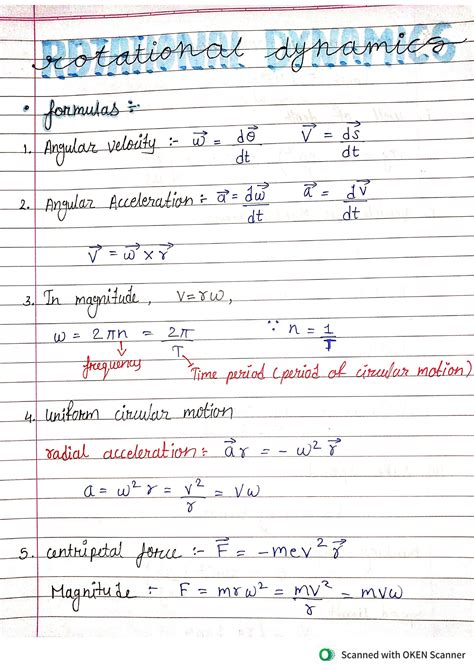 rotational dynamics
• formulas :-
1. Angular velocity :- w⃗ = dθ⃗/dt   V⃗ = ds⃗/dt
2. Angular Acceleration :- a⃗ = dw⃗/dt   a⃗ = dV⃗/dt
V⃗ = w⃗ × r⃗
3. In magnitude, V = rw,
w = 2πn = 2π/T   ∵ n = 1/T
frequency   Time period (period of circular motion)
4. uniform circular motion
radial acceleration :- a⃗r = - w² r⃗
a = w² r = v²/r = Vw
5. centripetal force :- F⃗ = -mev² r⃗
Magnitude :- F = mrw² = mv²/r = mvw
Scanned with OKEN Scanner